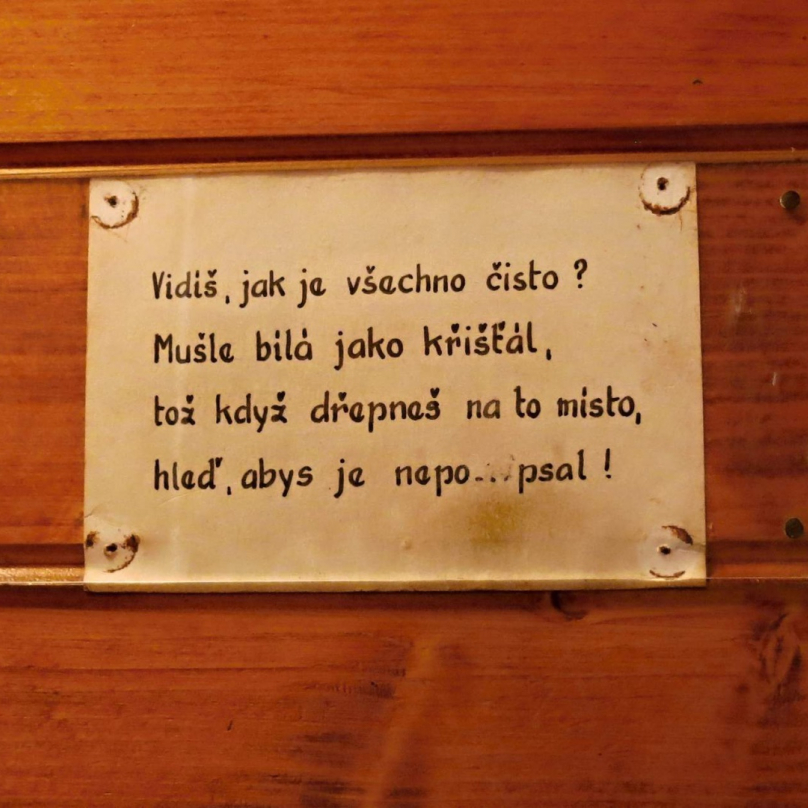 Vidíš, jak je všechno čisto ?
Mušle bílá jako křišťál,
tož když dřepneš na to místo,
hleď, abys je nepo...psal !